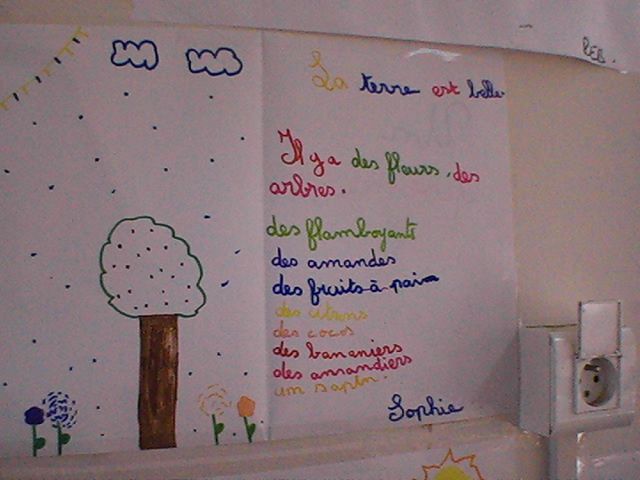 La terre est belle.
Il y a des fleurs, des
arbres.
des flamboyants
des amandes
des fruits à pain
des citrons
des cocos
des bananiers
des amandiers
um sapin.
Sophie